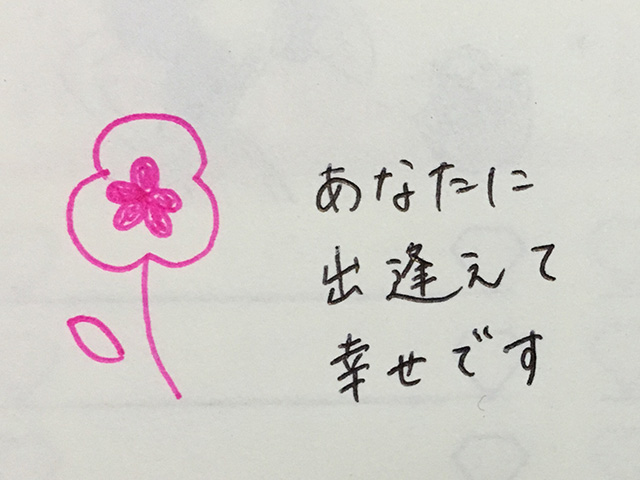 あなたに
出逢えて
幸せです